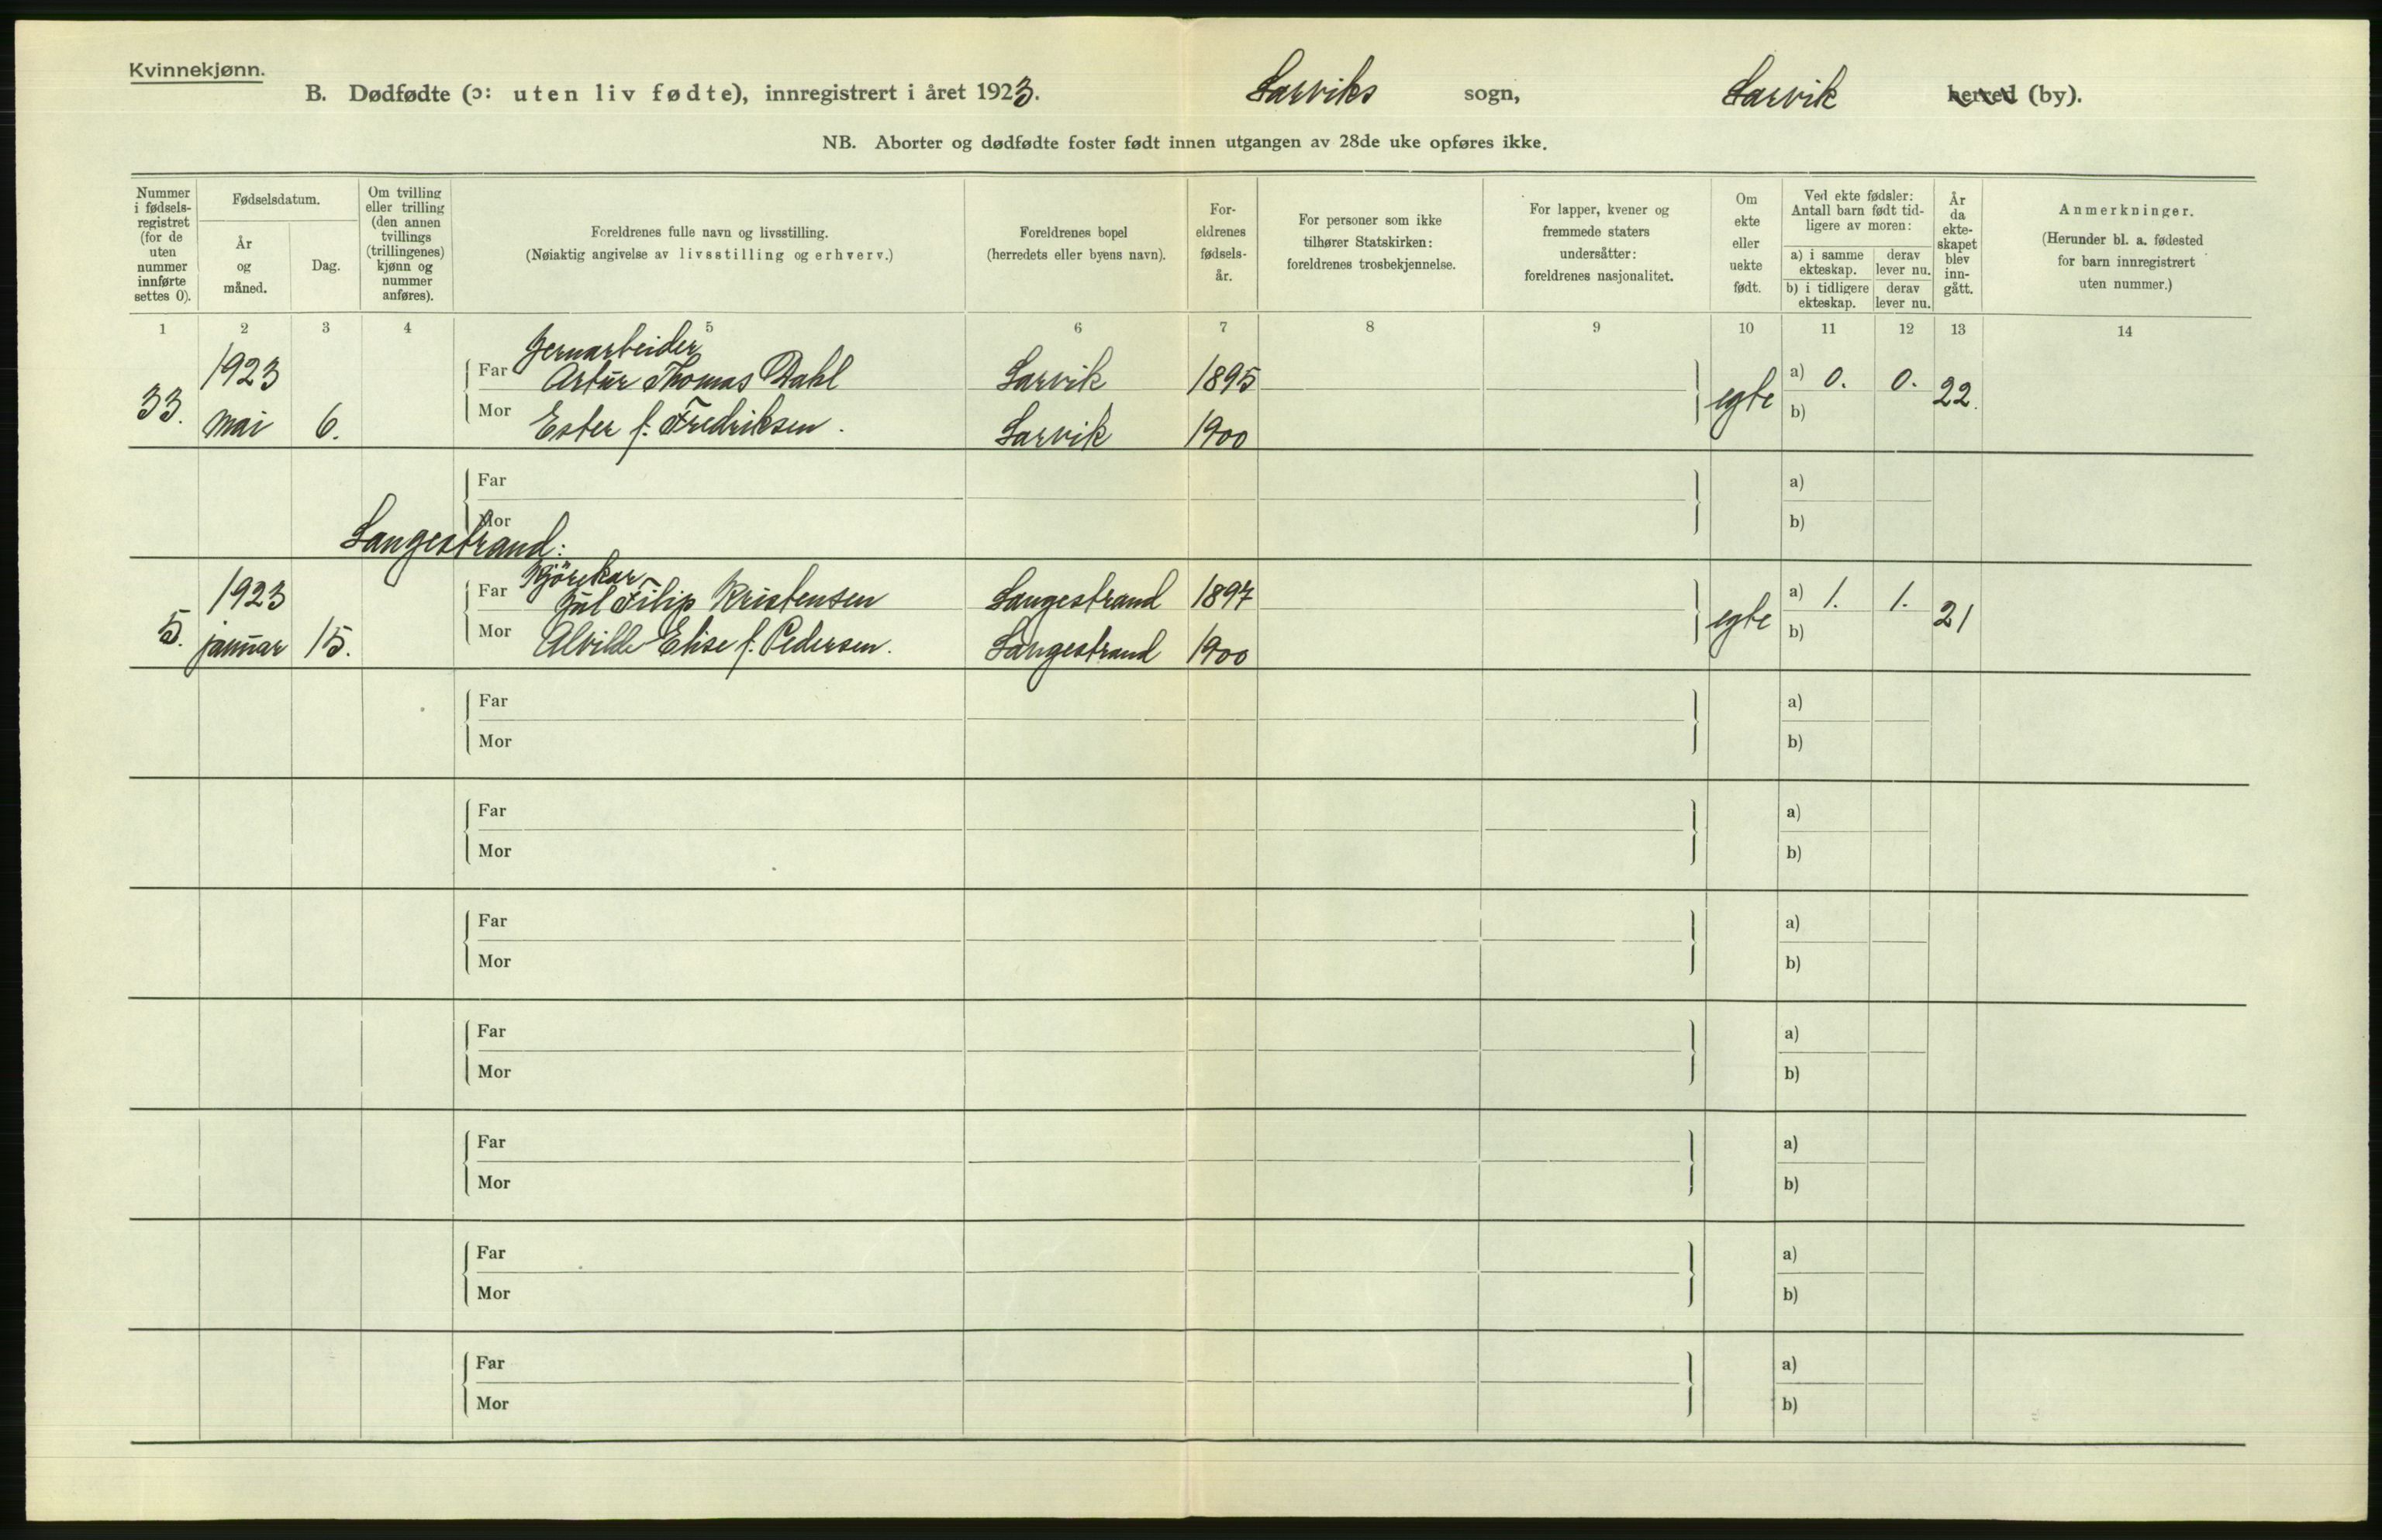 Kvinnekjønn.
B. Dødfødte (ɔ: uten liv fødte), innregistrert i året 1923. Larviks sogn, Larvik herred (by).
NB. Aborter og dødfødte foster født innen utgangen av 28de uke opføres ikke.
Nummer i fødselsregistret (for de uten nummer innførte settes 0).
Fødselsdatum.
År og måned.
Dag.
Om tvilling eller trilling (den annen tvillings (trillingenes) kjønn og nummer anføres).
Foreldrenes fulle navn og livsstilling.
(Nøiaktig angivelse av livsstilling og erhverv.)
Foreldrenes bopel
(herredets eller byens navn).
Foreldrenes fødselsår.
For personer som ikke tilhører Statskirken: foreldrenes trosbekjennelse.
For lapper, kvener og fremmede staters undersåtter: foreldrenes nasjonalitet.
Om ekte eller uekte født.
Ved ekte fødsler: Antall barn født tidligere av moren:
a) i samme ekteskap.
derav lever nu.
b) i tidligere ekteskap.
derav lever nu.
År da ekteskapet blev inngått.
Anmerkninger.
(Herunder bl. a. fødested for barn innregistrert uten nummer.)
1 2 3 4 5 6 7 8 9 10 11 12 13 14
Jernarbeider
1923 Far Artur Thomas Dahl Larvik 1895 a) 0. 0.
33. mai 6. Mor Ester f. Fredriksen. Larvik 1900 egte b) 22.
Far a)
Mor b)
Langestrand:
Kjörekar
1923 Far Jul Filip Kristensen Langestrand 1897 a) 1. 1.
5. januar 15. Mor Alvilde Elise f. Pedersen. Langestrand 1900 egte b) 21
Far a)
Mor b)
Far a)
Mor b)
Far a)
Mor b)
Far a)
Mor b)
Far a)
Mor b)
Far a)
Mor b)
Far a)
Mor b)